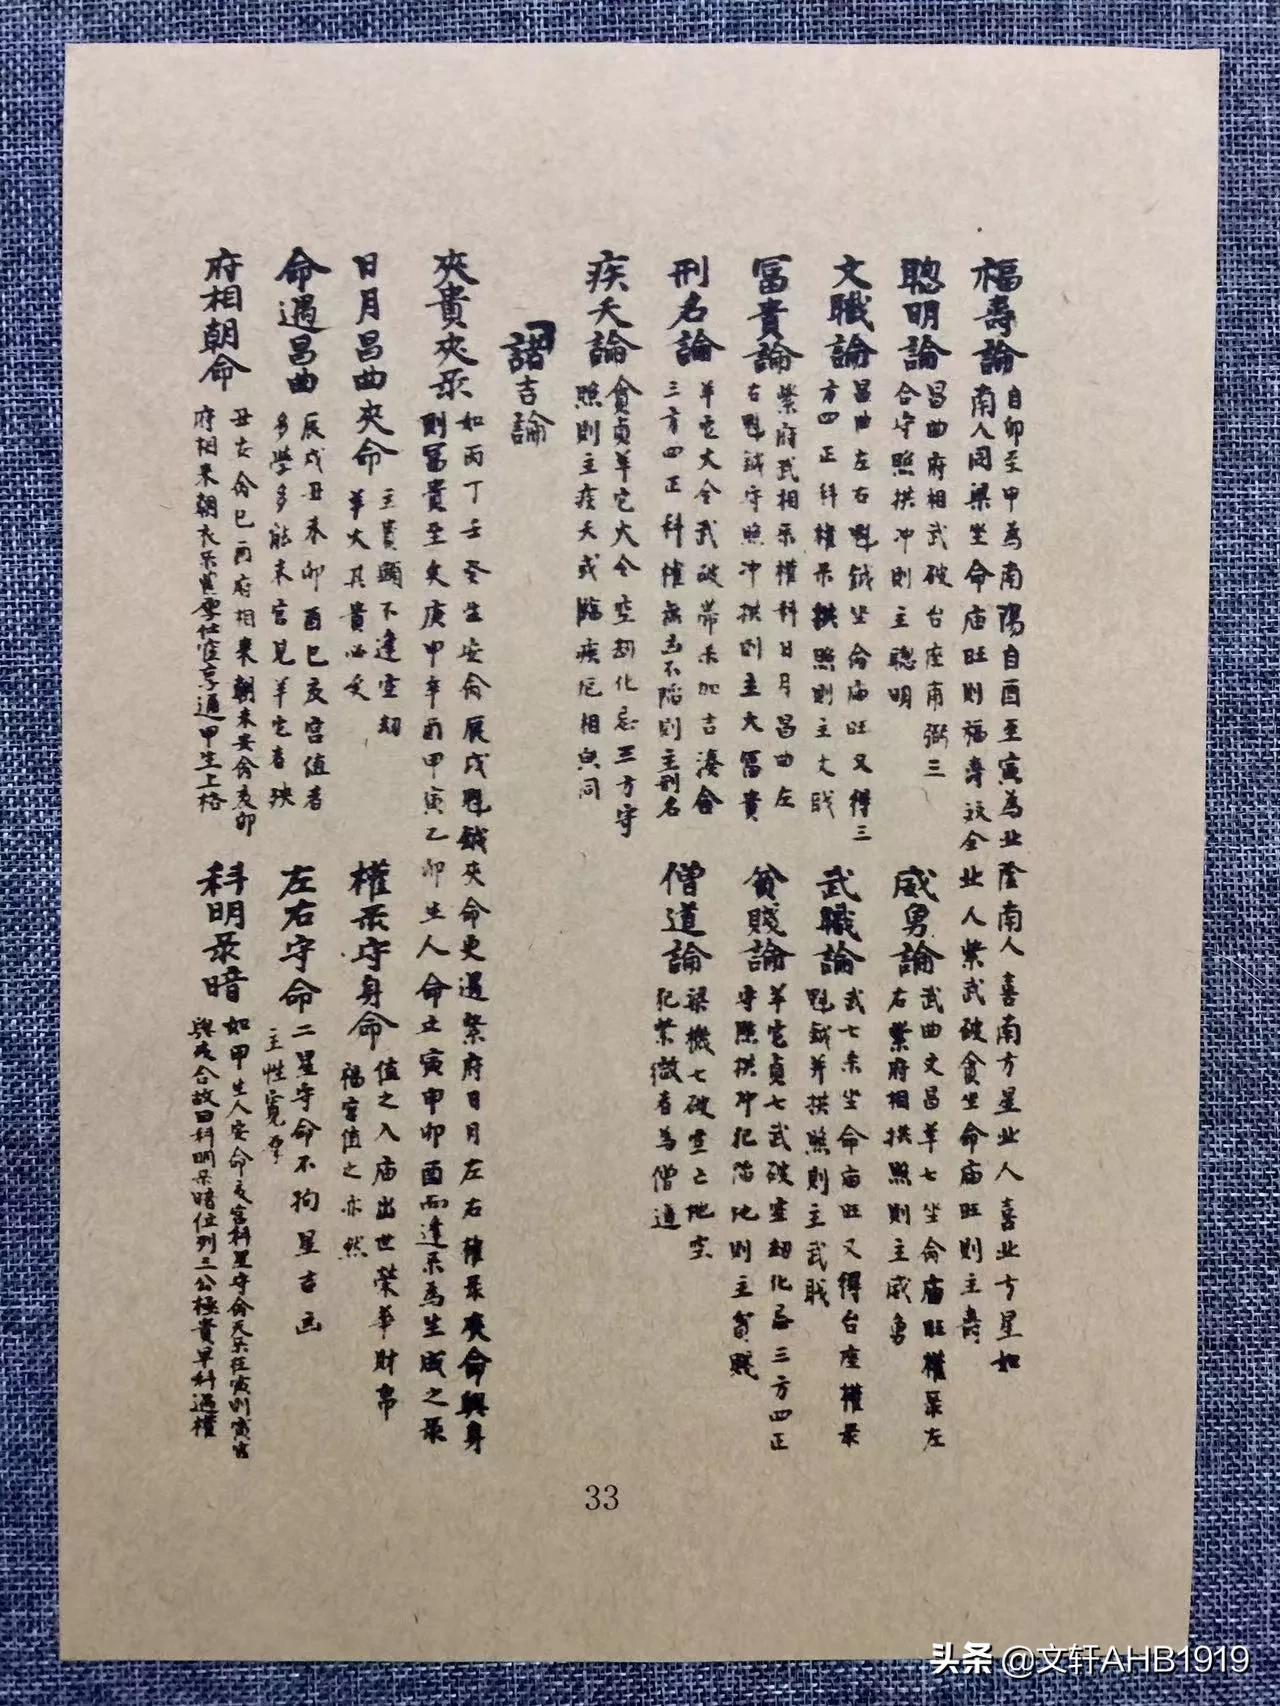 福壽論
自卯至申為南陽自酉至寅為北陰南人喜南方星北人喜北方星如
南人同梁坐命庙旺則福壽双全北人紫武破貪坐命庙旺則主壽
聰明論
昌曲府相武破台座甫弼三
合守照拱冲則主聰明
威勇論
武曲文昌羊七坐命庙旺權彔左
右紫府相拱照則主威勇
文職論
昌曲左右魁鉞坐命庙旺又得三
方四正科權彔拱照則主文戝
武職論
武七杀坐命庙旺又得台座權彔
魁鉞并拱照則主武戝
冨貴論
紫府武相彔權科日月昌曲左
右魁鉞守照冲拱則主大冨貴
貧賤論
羊它貞七武破空刼化忌三方四正
守照拱冲犯陷地則主貧賤
刑名論
羊它火令武破帶杀加吉湊合
三方四正科權無忌不陷則主刑名
僧道論
梁機七破空亡地空
犯紫微者為僧道
疾夭論
貪貞羊它火令空刼化忌三方守
照則主疾夭或臨疾厄相皃同
諸吉論
夾貴夾彔
如丙丁壬癸生安命辰戌魁鉞夾命更遇紫府日月左右權彔夾命與身
則冨貴至矣庚甲辛酉甲寅乙卯生人命立寅申卯酉而逢彔為生成之彔
日月昌曲夾命
主貴顯不逢空刼
羊火其貴必矣
權彔守身命
值之入庙出世榮華財帛
福官值之亦然
命遇昌曲
辰戌丑未卯酉巳亥宮值者
多學多能未宮見羊它者殀
左右守命
二星守命不狗星吉凶
主性寬厚
府相朝命
丑安命巳酉府相来朝未安命亥卯
府相来朝衣彔仕宦亨通甲生上格
科明彔暗
如甲生人安命亥宮科星守命天彔在寅則寅宮
與亥合故曰科明彔暗位列三公極貴早科遇權
33
头条 @文轩AHB1919